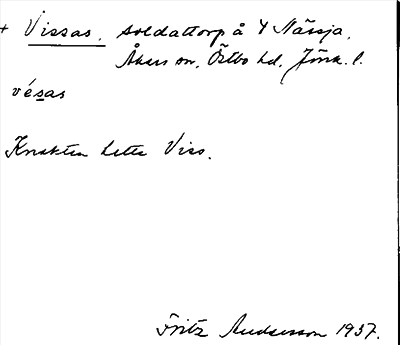 + Vissas. soldattorp å Y Nässja.
Åkers sn, Östbo hd, Jönk. l.
vésas
Knekten hette Viss.
Fritz Andersson 1937.